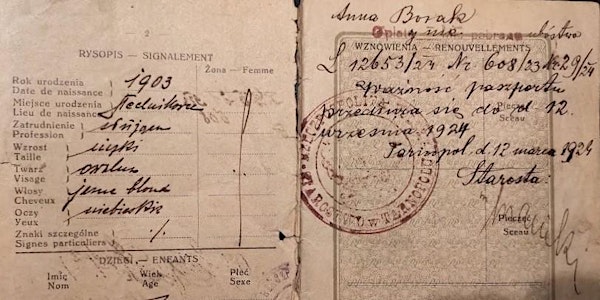 2
RYSOPIS — SIGNALEMENT
Żona — Femme
Rok urodzenia
Date de naissance
1903
Miejsce urodzenia
Lieu de naissance
Zatrudnienie
Profession
Wzrost
Taille
niski
Twarz
Visage
owalna
Włosy
Cheveux
jasne blond
Oczy
Yeux
niebieskie
Znaki szczególne
Signes particuliers
·/.
DZIECI — ENFANTS
Imię
Nom
Wiek
Age
Płeć
Sexe
Anna Borak
WZNOWIENIA — RENOUVELLEMENTS
L 12653/24 Nr 608/23 No 29/24
Ważność paszportu
przedłuża się do d. 12
września 1924
Tarnopol d. 12 marca 1924
Starosta:
Pieczęć
Sceau
Pieczęć
Sceau